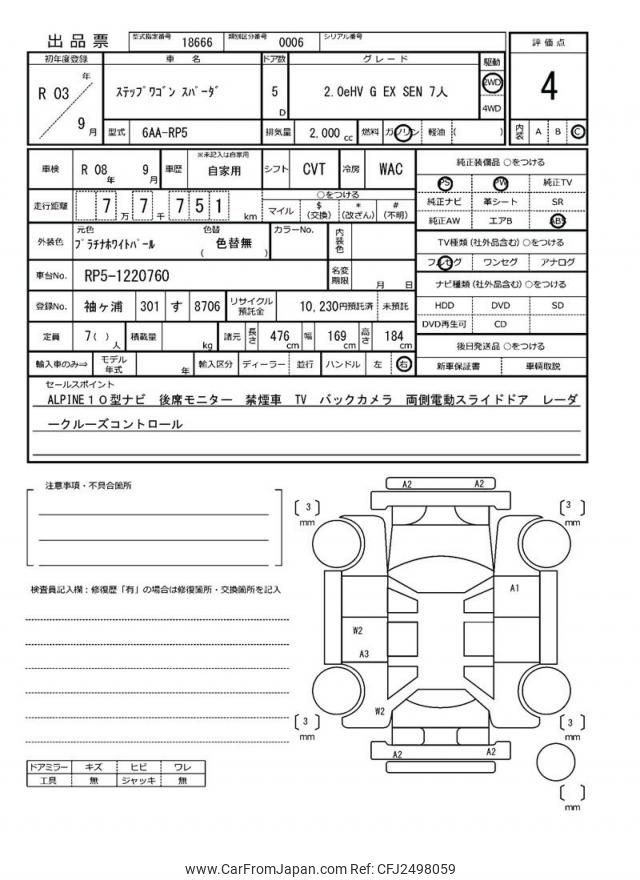 出品票
型式指定番号 18666 類別区分番号 0006 シリアル番号
初年度登録 車 名 ドア数 グレード 駆動 評価点
R 03 年 9 月
ステップワゴン スパーダ 5 D 2.0eHV G EX SEN 7人 2WD 4WD
4
型式 6AA-RP5 排気量 2,000 cc 燃料 ガソリン 軽油 ( ) 内装 A B C
車検 R 08 年 9 月 車歴 ※未記入は自家用 自家用 シフト CVT 冷房 WAC
純正装備品 ○をつける
PS PW 純正TV
純正ナビ 革シート SR
純正AW エアB ABS
走行距離 7 万 7 千 7 5 1 km
○をつける
マイル $ (交換) * (改ざん) # (不明)
外装色 元色 プラチナホワイトパール 色替 ( 色替無 ) カラーNo. 内装色
TV種類 (社外品含む) ○をつける
フルセグ ワンセグ アナログ
車台No. RP5-1220760 名変期限 月 日
ナビ種類 (社外品含む) ○をつける
HDD DVD SD
DVD再生可 CD
登録No. 袖ヶ浦 301 す 8706 リサイクル預託金 10,230円預託済 未預託
定員 7( ) 人 積載量 kg 諸元 長さ 476 cm 幅 169 cm 高さ 184 cm
後日発送品 ○をつける
新車保証書 車輌取説
輸入車のみ⇒ モデル年式 年 輸入区分 ディーラー 並行 ハンドル 左 右
セールスポイント
ALPINE10型ナビ 後席モニター 禁煙車 TV バックカメラ 両側電動スライドドア レーダ
ークルーズコントロール
注意事項・不具合箇所
検査員記入欄：修復歴「有」の場合は修復箇所・交換箇所を記入
ドアミラー キズ ヒビ ワレ
工具 無 ジャッキ 無
A2 A2
3 mm
3 mm
A1
W2
A3
W2
3 mm
3 mm
A2 A2
mm
www.CarFromJapan.com Ref: CFJ2498059